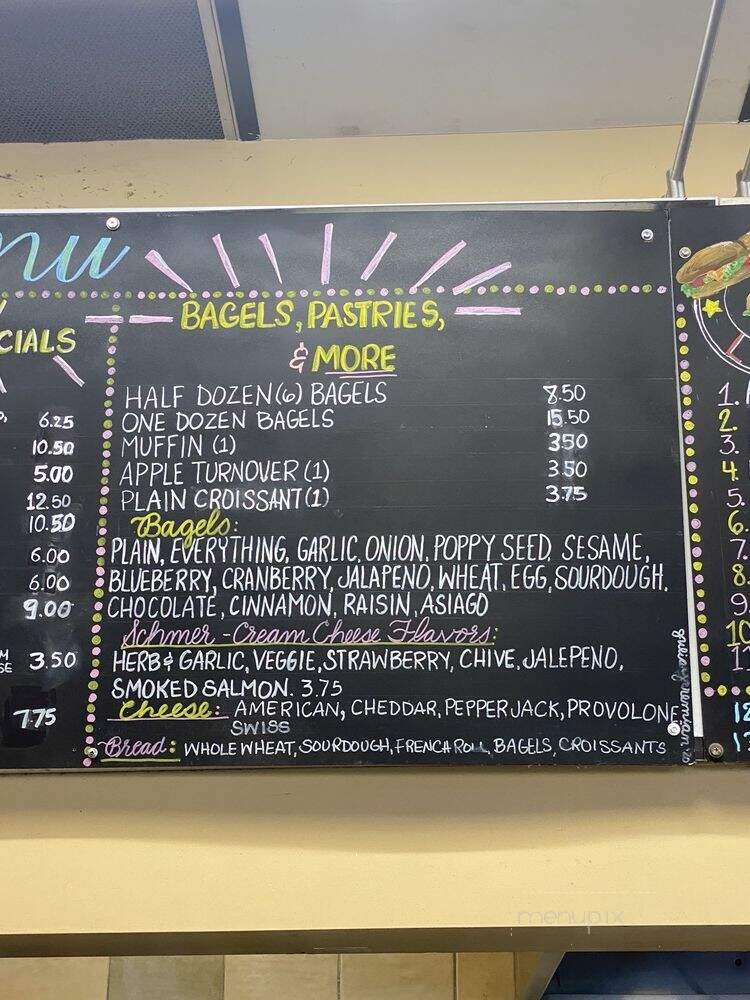 nu
CIALS
6.25
10.50
5.00
12.50
10.50
6.00
6.00
9.00
3.50
7.75
BAGELS, PASTRIES,
& MORE
HALF DOZEN (6) BAGELS 8.50
ONE DOZEN BAGELS 15.50
MUFFIN (1) 3.50
APPLE TURNOVER (1) 3.50
PLAIN CROISSANT (1) 3.75
Bagels:
PLAIN, EVERYTHING, GARLIC, ONION, POPPY SEED, SESAME,
BLUEBERRY, CRANBERRY, JALAPENO, WHEAT, EGG, SOURDOUGH,
CHOCOLATE, CINNAMON, RAISIN, ASIAGO
Schmer - Cream Cheese Flavors:
HERB & GARLIC, VEGGIE, STRAWBERRY, CHIVE, JALEPENO,
SMOKED SALMON. 3.75
Cheese: AMERICAN, CHEDDAR, PEPPER JACK, PROVOLONE
SWISS
Bread: WHOLE WHEAT, SOURDOUGH, FRENCH ROLL, BAGELS, CROISSANTS
1.
2.
3.
4.
5.
6.
7.
8.
9
10
11
12
13
menupix